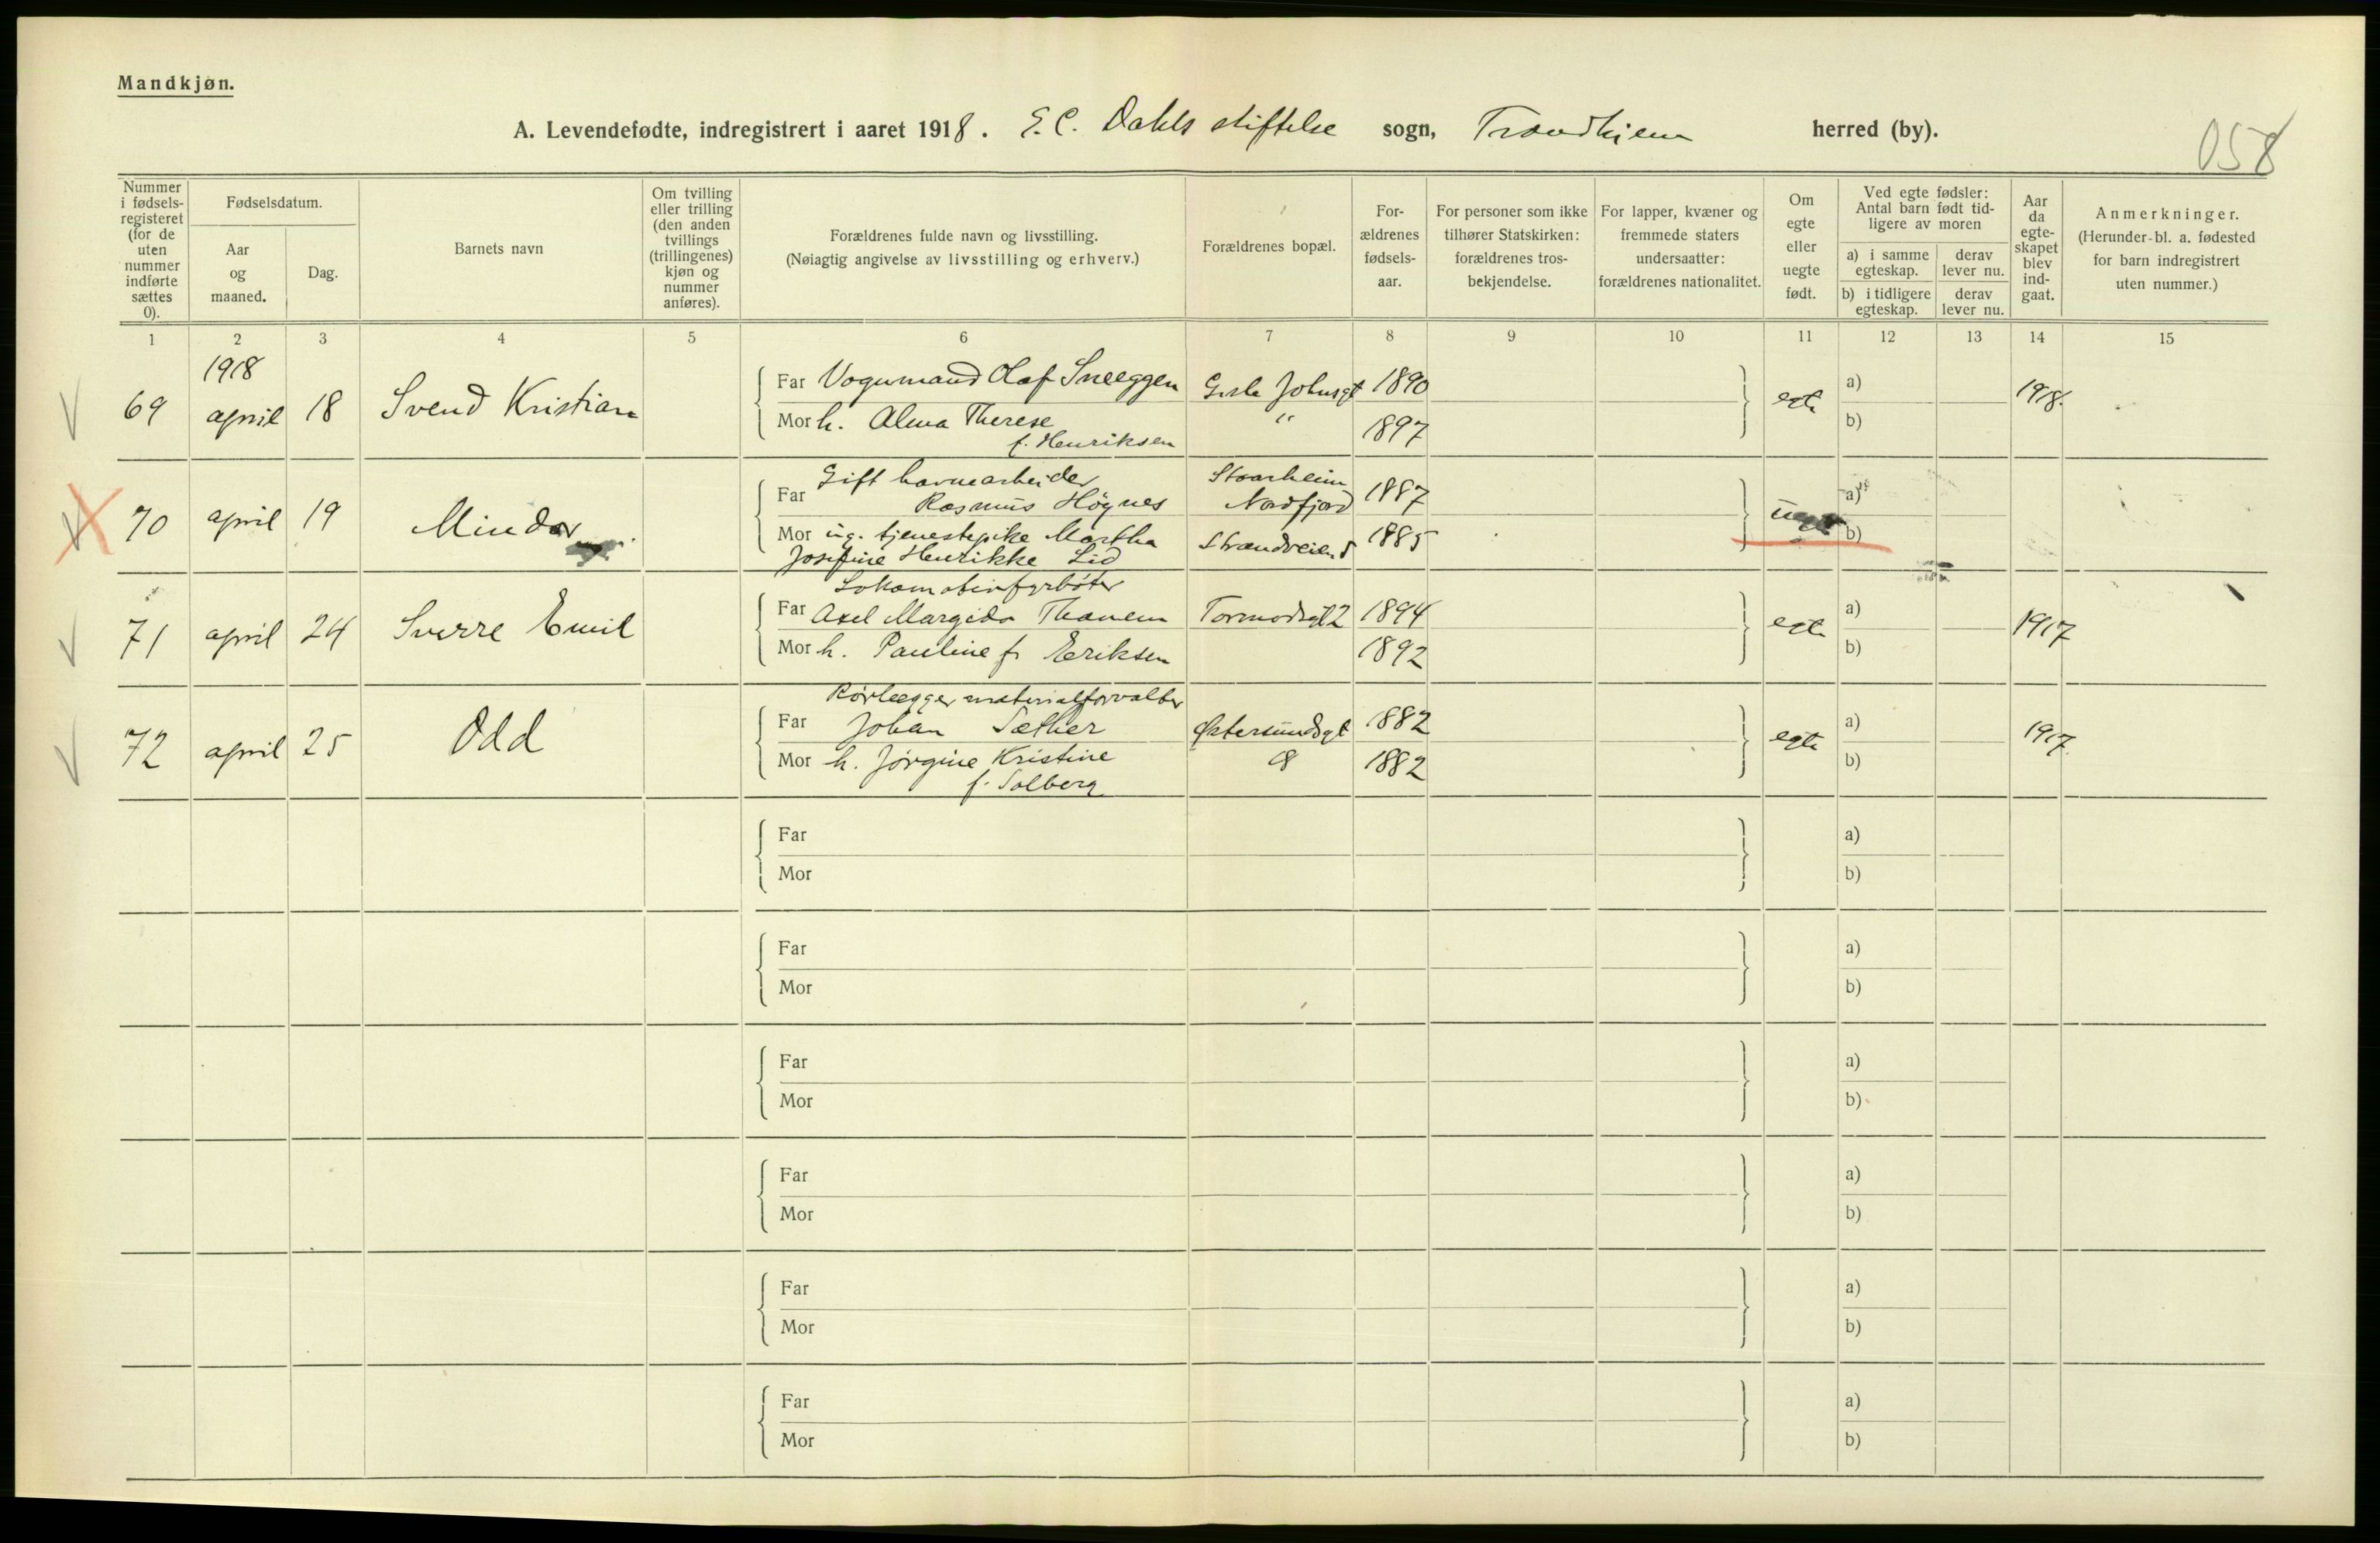 Mandkjøn.
A. Levendefødte, indregistrert i aaret 1918. E. C. Dahls stiftelse sogn, Trondhjem herred (by).
058
Nummer i fødsels-registeret (for de uten nummer indførte sættes 0).
Fødselsdatum.
Aar og maaned.
Dag.
Barnets navn
Om tvilling eller trilling (den anden tvillings (trillingenes) kjøn og nummer anføres).
Forældrenes fulde navn og livsstilling.
(Nøiagtig angivelse av livsstilling og erhverv.)
Forældrenes bopæl.
For-ældrenes fødsels-aar.
For personer som ikke tilhører Statskirken: forældrenes tros-bekjendelse.
For lapper, kvæner og fremmede staters undersaatter: forældrenes nationalitet.
Om egte eller uegte født.
Ved egte fødsler: Antal barn født tid-ligere av moren
a) i samme egteskap.
derav lever nu.
b) i tidligere egteskap.
derav lever nu.
Aar da egte-skapet blev ind-gaat.
Anmerkninger.
(Herunder bl. a. fødested for barn indregistrert uten nummer.)
1 2 3 4 5 6 7 8 9 10 11 12 13 14 15
1918
69 april 18 Svend Kristian
Far Vognmand Olaf Sneeggen Gisle Johnsgt 1890
egte a) 1918.
Mor h. Alma Therese " 1897
b)
f. Henriksen
Gift havnearbeider Staarheim
70 april 19 Mindor
Far Rasmus Høgnes Nordfjord 1887
uegte a)
Mor ug. tjenestepike Martha Strandveien 5 1885
b)
Josefine Henrikke Lid
Lokomotivfyrbøter
71 april 24 Sverre Emil
Far Axel Margido Thanem Tormodsgt 2 1894
egte a) 1917
Mor h. Pauline f. Eriksen 1892
b)
Rørlægger materialforvalter
72 april 25 Odd
Far Johan Sæther Østersundsgt 1882
egte a) 1917.
Mor h. Jørgine Kristine 8 1882
b)
f. Solberg
Far a)
Mor b)
Far a)
Mor b)
Far a)
Mor b)
Far a)
Mor b)
Far a)
Mor b)
Far a)
Mor b)